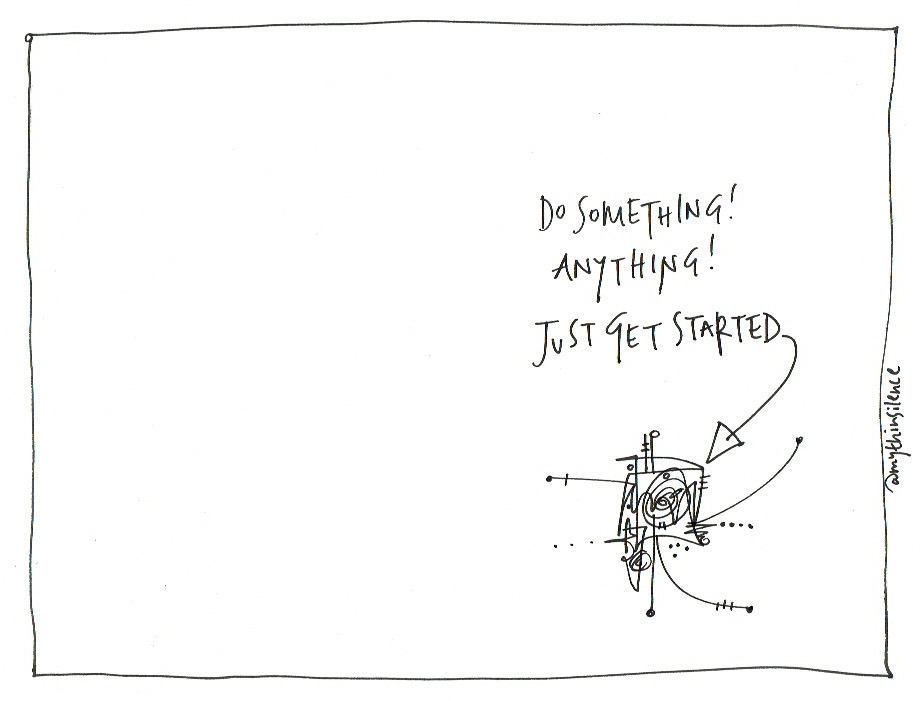 DO SOMETHING!
ANYTHING!
JUST GET STARTED
@mythinsilence